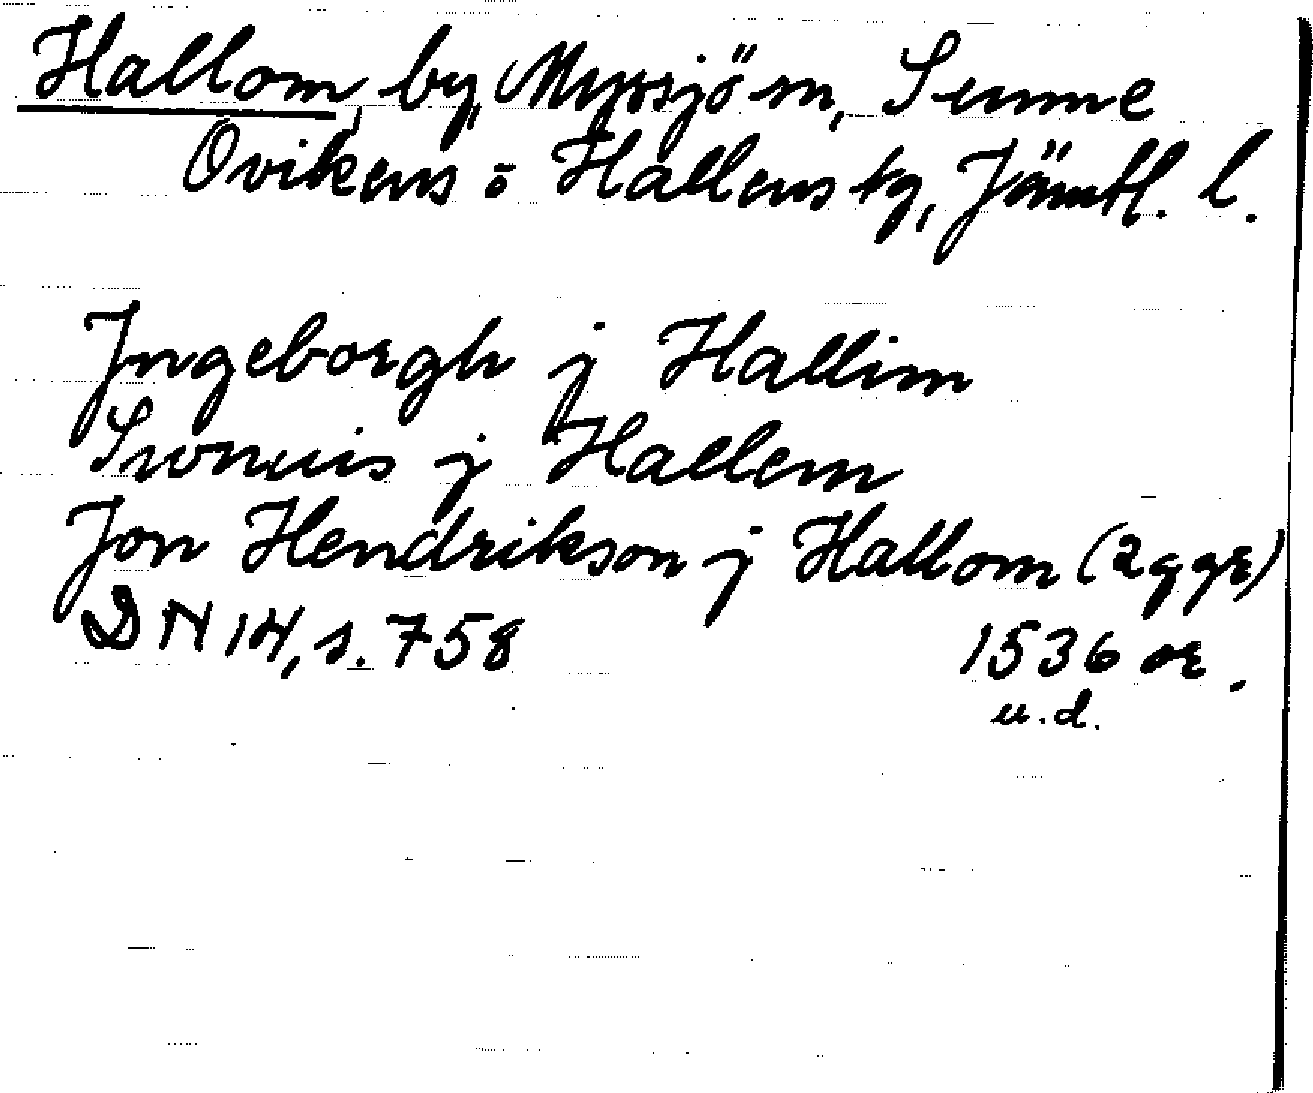 Hallom, by, Myssjö sn, Sunne
Ovikens o Hallens tg, Jämtl. l.
Jngeborgh j Hallim
j Hallem
Jon Hendrikson j Hallom (2 ggr)
DN 14, s. 758 1536 or.
u.d.